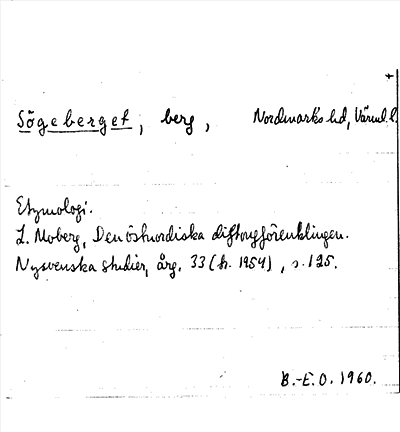 +
Sögeberget, berg, Nordmarks hd, Värml. l.
Etymologi.
L. Moberg, Den östnordiska diftongförenklingen.
Nysvenska studier, årg. 33 (h. 1954), s. 125.
B.-E.O. 1960.